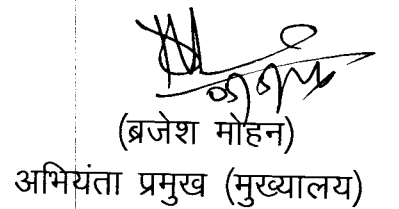 (ब्रजेश मोहन)
अभियंता प्रमुख (मुख्यालय)